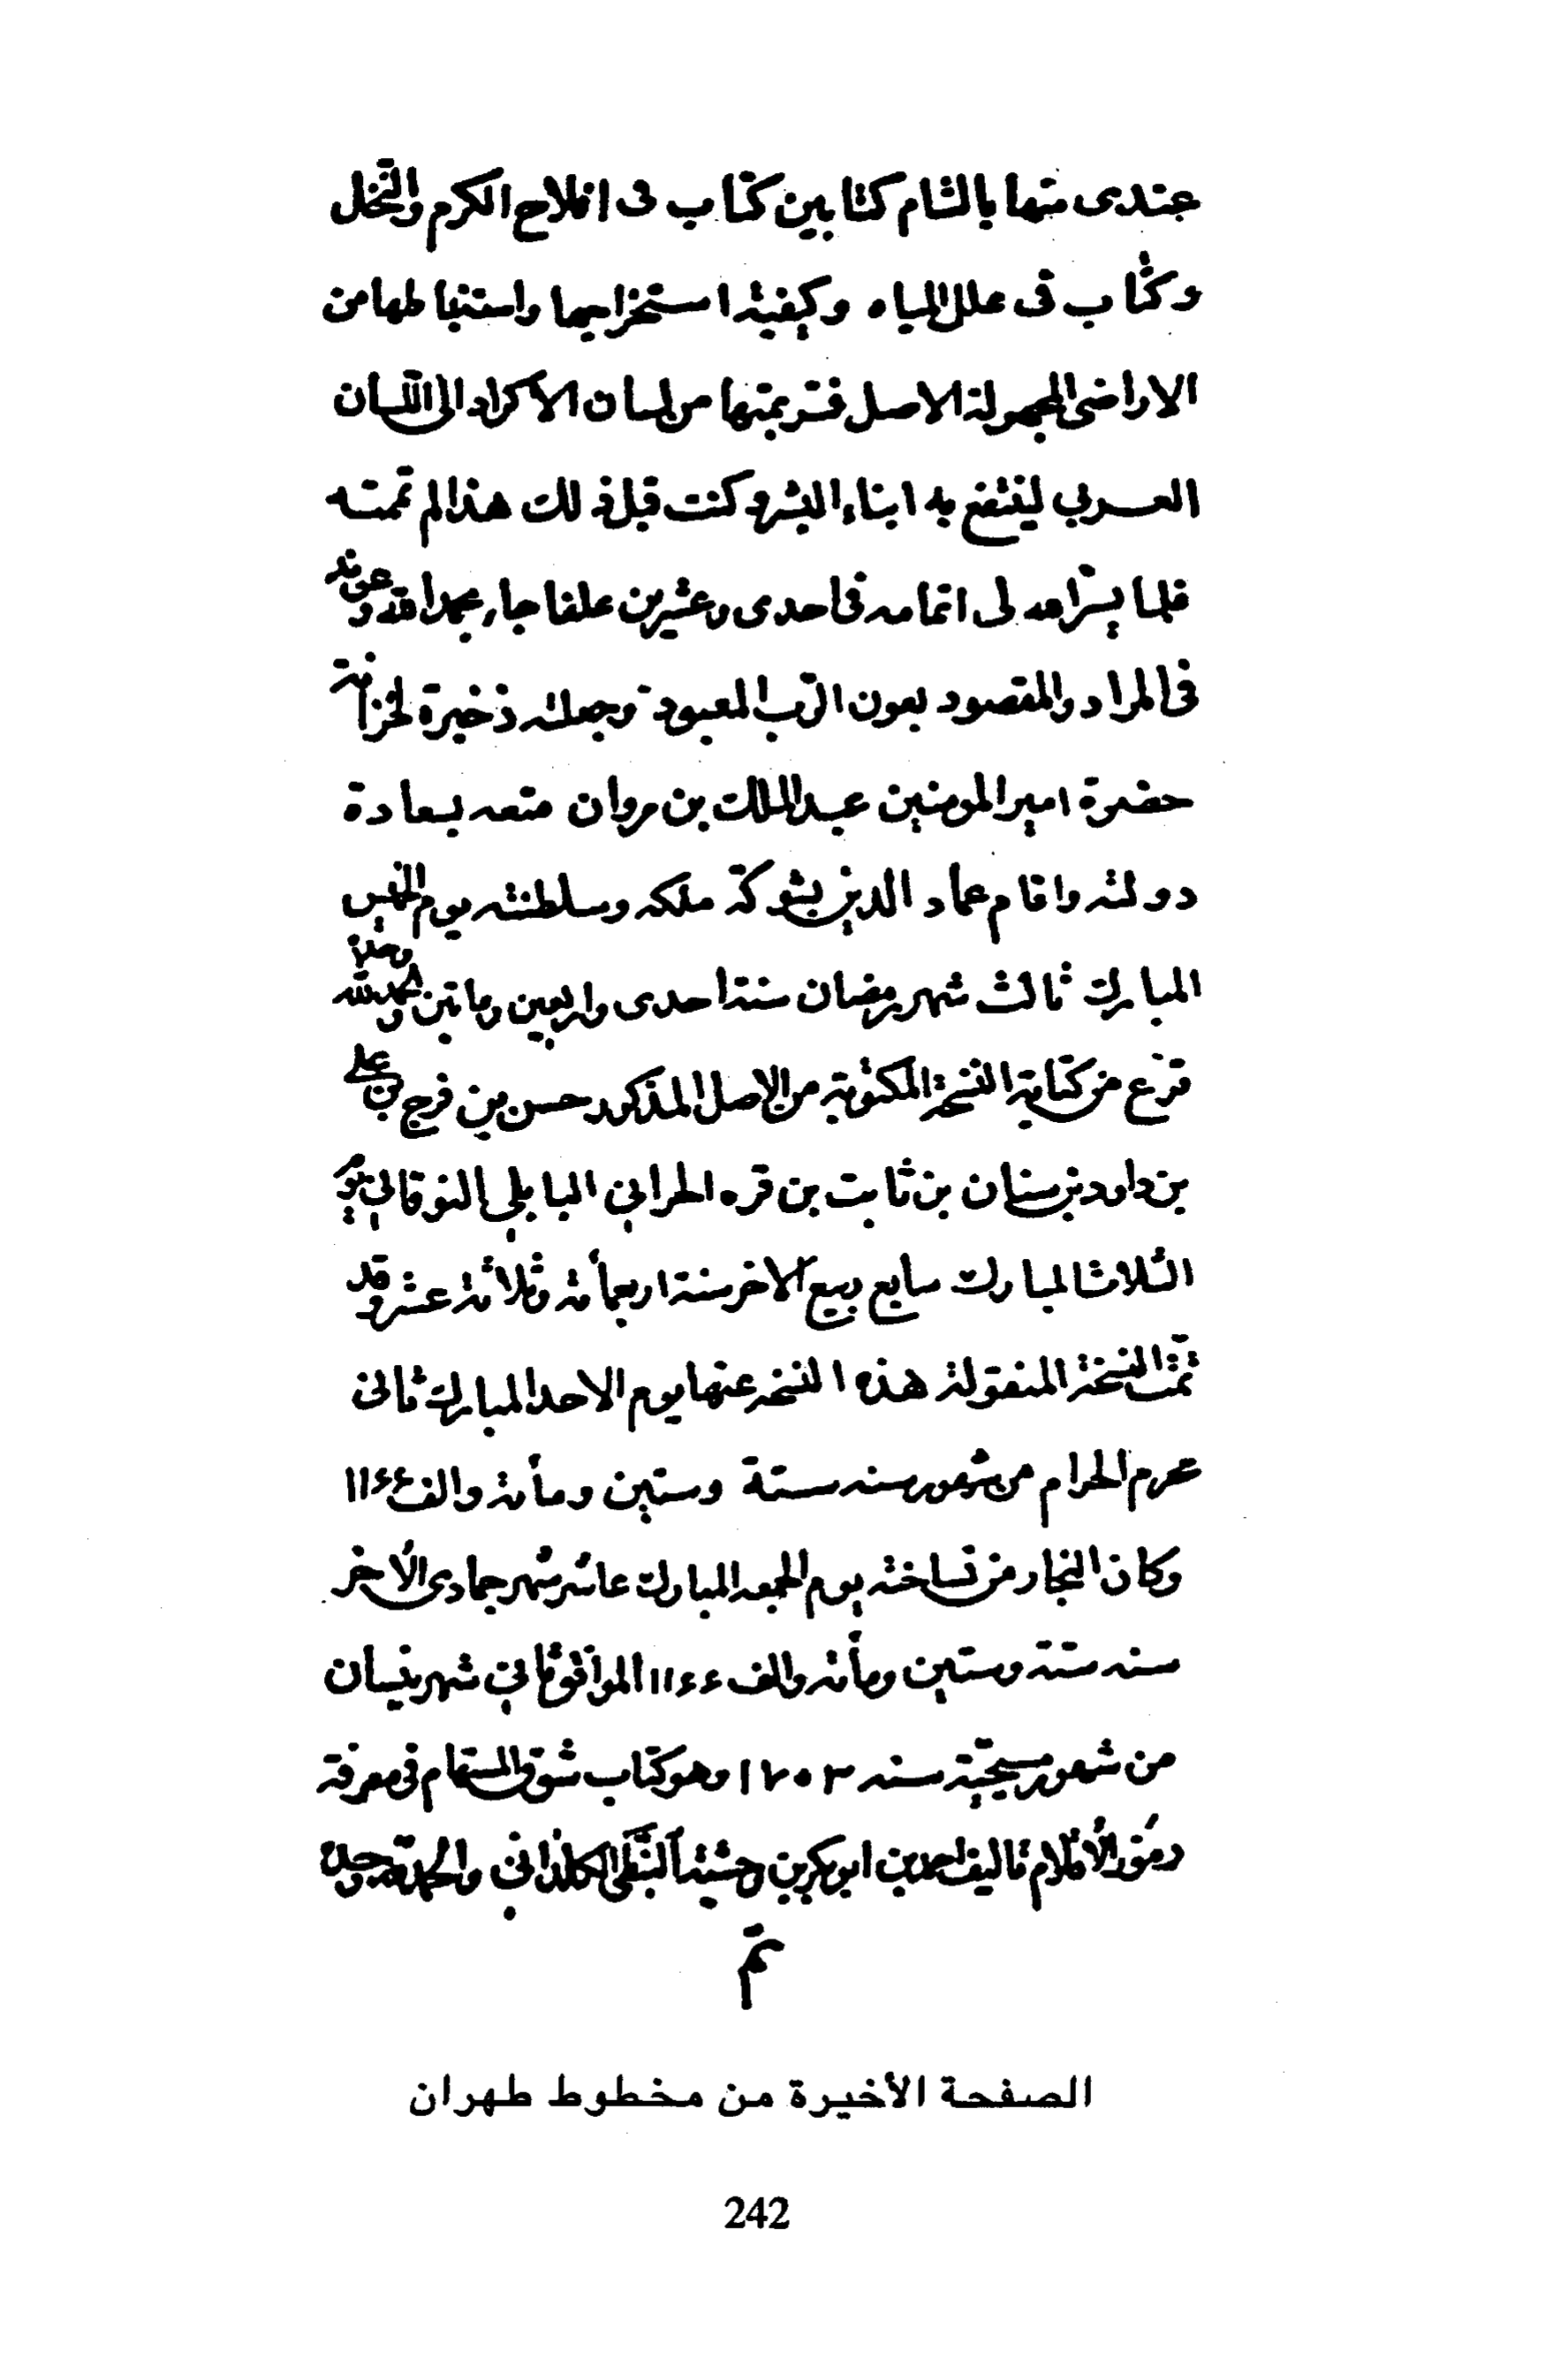 عندى منها بالشام كتابين كتاب فى افلاح الكرم والنخل
وكتاب فى علل المياه وكيفية استخراجها واستنباطها من
الاراضى المجهولة الاصل فترجمتها من لسان الاكراد الى اللسان
العربي لينتفع به ابناء البشر وكنت قبل ذلك هذا لم تممته
فلما يسر الله لى اتمامه فى احدى وعشرين علفا جاء بحمد الله وعونه
فى المراد والمقصود بعون الرب المعبود وجعلته ذخيرة لخزانة
حضرة امير المومنين عبد الملك بن مروان متعه بسعادة
دولته واقام عماد الدين بشوكة ملكه وسلطنته يوم الخميس
المبارك ثالث شهر رمضان سنة احدى واربعين وماتين والحمد لله وحده
فرع من كتابة النسخة المكتوبة من الاصل المذكور حسن بن فرج بن على
بن داود بن سنان بن ثابت بن قره الحراني البابلي النوقاني يوم
الثلاثا المبارك سابع ربيع الاخر سنة اربعمأئة وثلاثة عشر وقد
تمت النسخة المنقولة هذه النسخه عنها يوم الاحد المبارك ثانى
محرم الحرام من شهور سنه ستة وستين ومأئة والف ١١٦٦
وكان النجاز من نساخته يوم الجمعه المبارك عاشر شهر جمادى الأخر
سنه ستة وستين ومأئة والف ١١٦٦ الموافق ثاني شهر نيسان
من شهور مسيحية سنه ١٧٥٣ وهو كتاب شوق المستهام فى معرفة
رموز الأقلام تاليف احمد بن ابو بكر بن وحشية النبطي الكلداني والحمد لله وحده
تم
الصفحة الأخيرة من مخطوط طهران
242